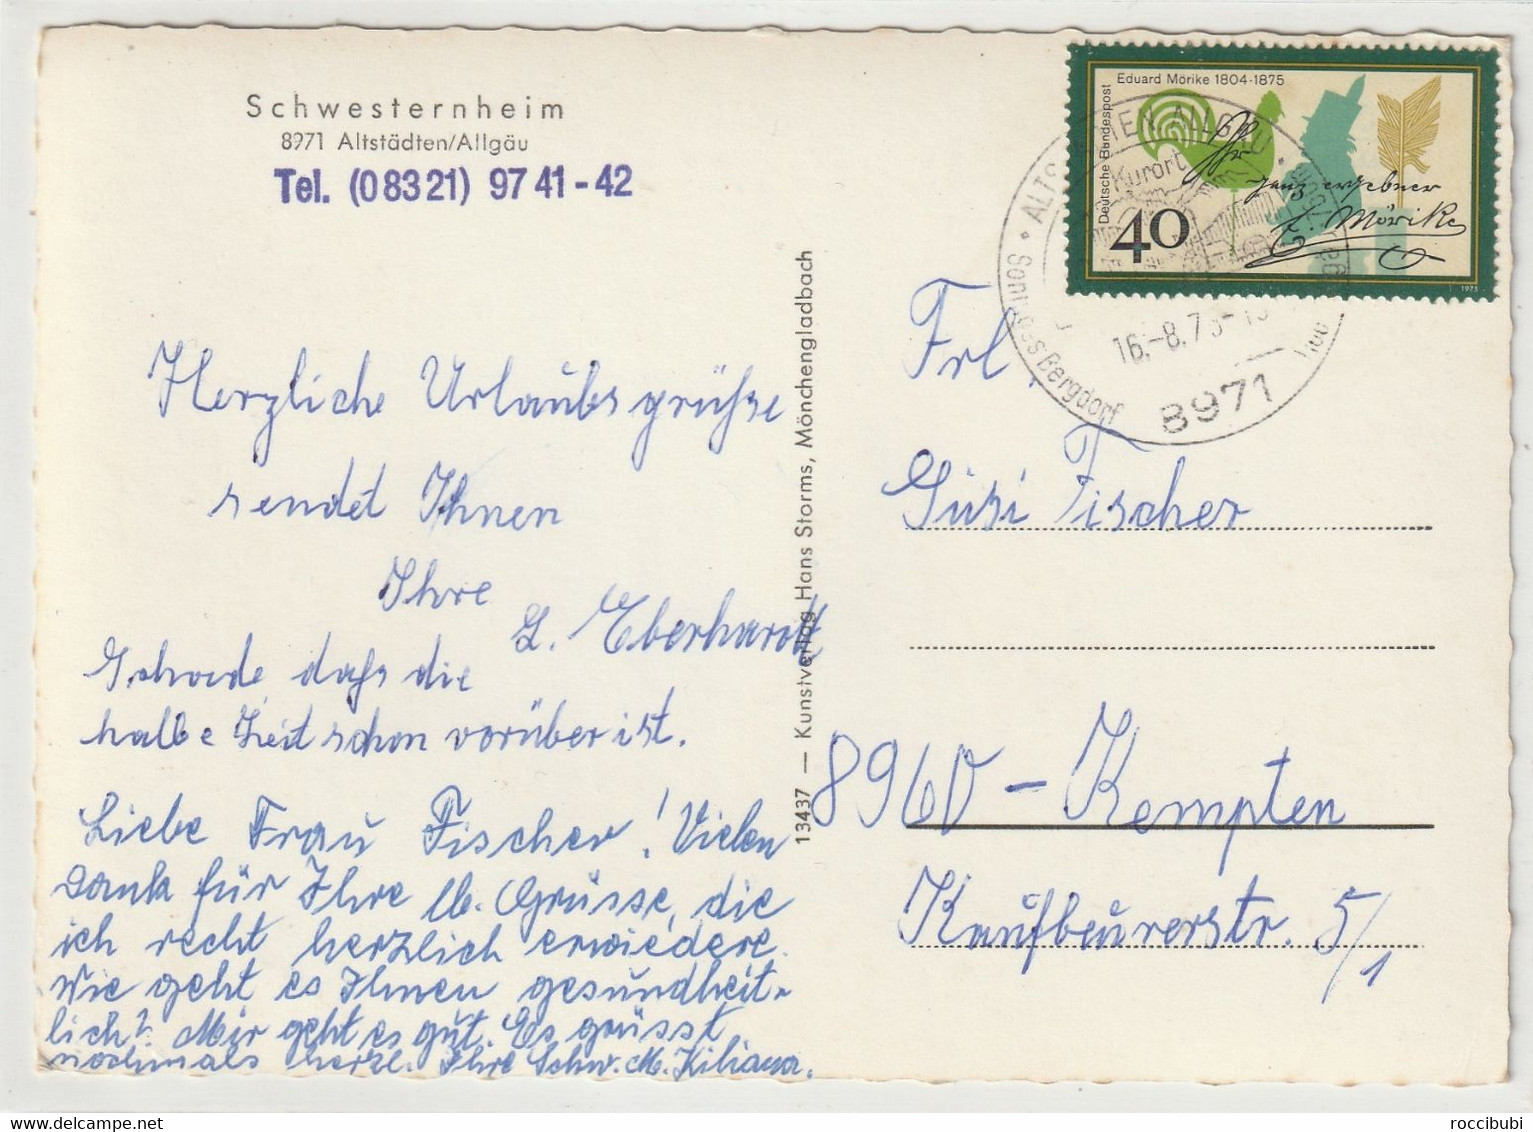 Schwesternheim
8971 Altstädten/Allgäu
Tel. (08321) 9741-42
Herzliche Urlaubsgrüsse
sendet Ihnen
Ihre
L. Eberhardt
Schade, dass die
halbe Zeit schon vorüber ist.
Liebe Frau Fischer! Vielen
Dank für Ihre lb. Grüsse, die
ich recht herzlich erwiedere.
Wie geht es Ihnen gesundheit-
lich? Mir geht es gut. Es grüsst
nochmals herzl. Ihre Schw. M. Kiliana.
13437 — Kunstverlag Hans Storms, Mönchengladbach
Eduard Mörike 1804-1875
Deutsche Bundespost
40
Ihr
ganz ergebner
E. Mörike
1975
Kurort
Sonniges Bergdorf
16.-8.7
8971
Frl.
Susi Fischer
8960 - Kempten
Kaufbeurerstr. 5/1
roccibubi